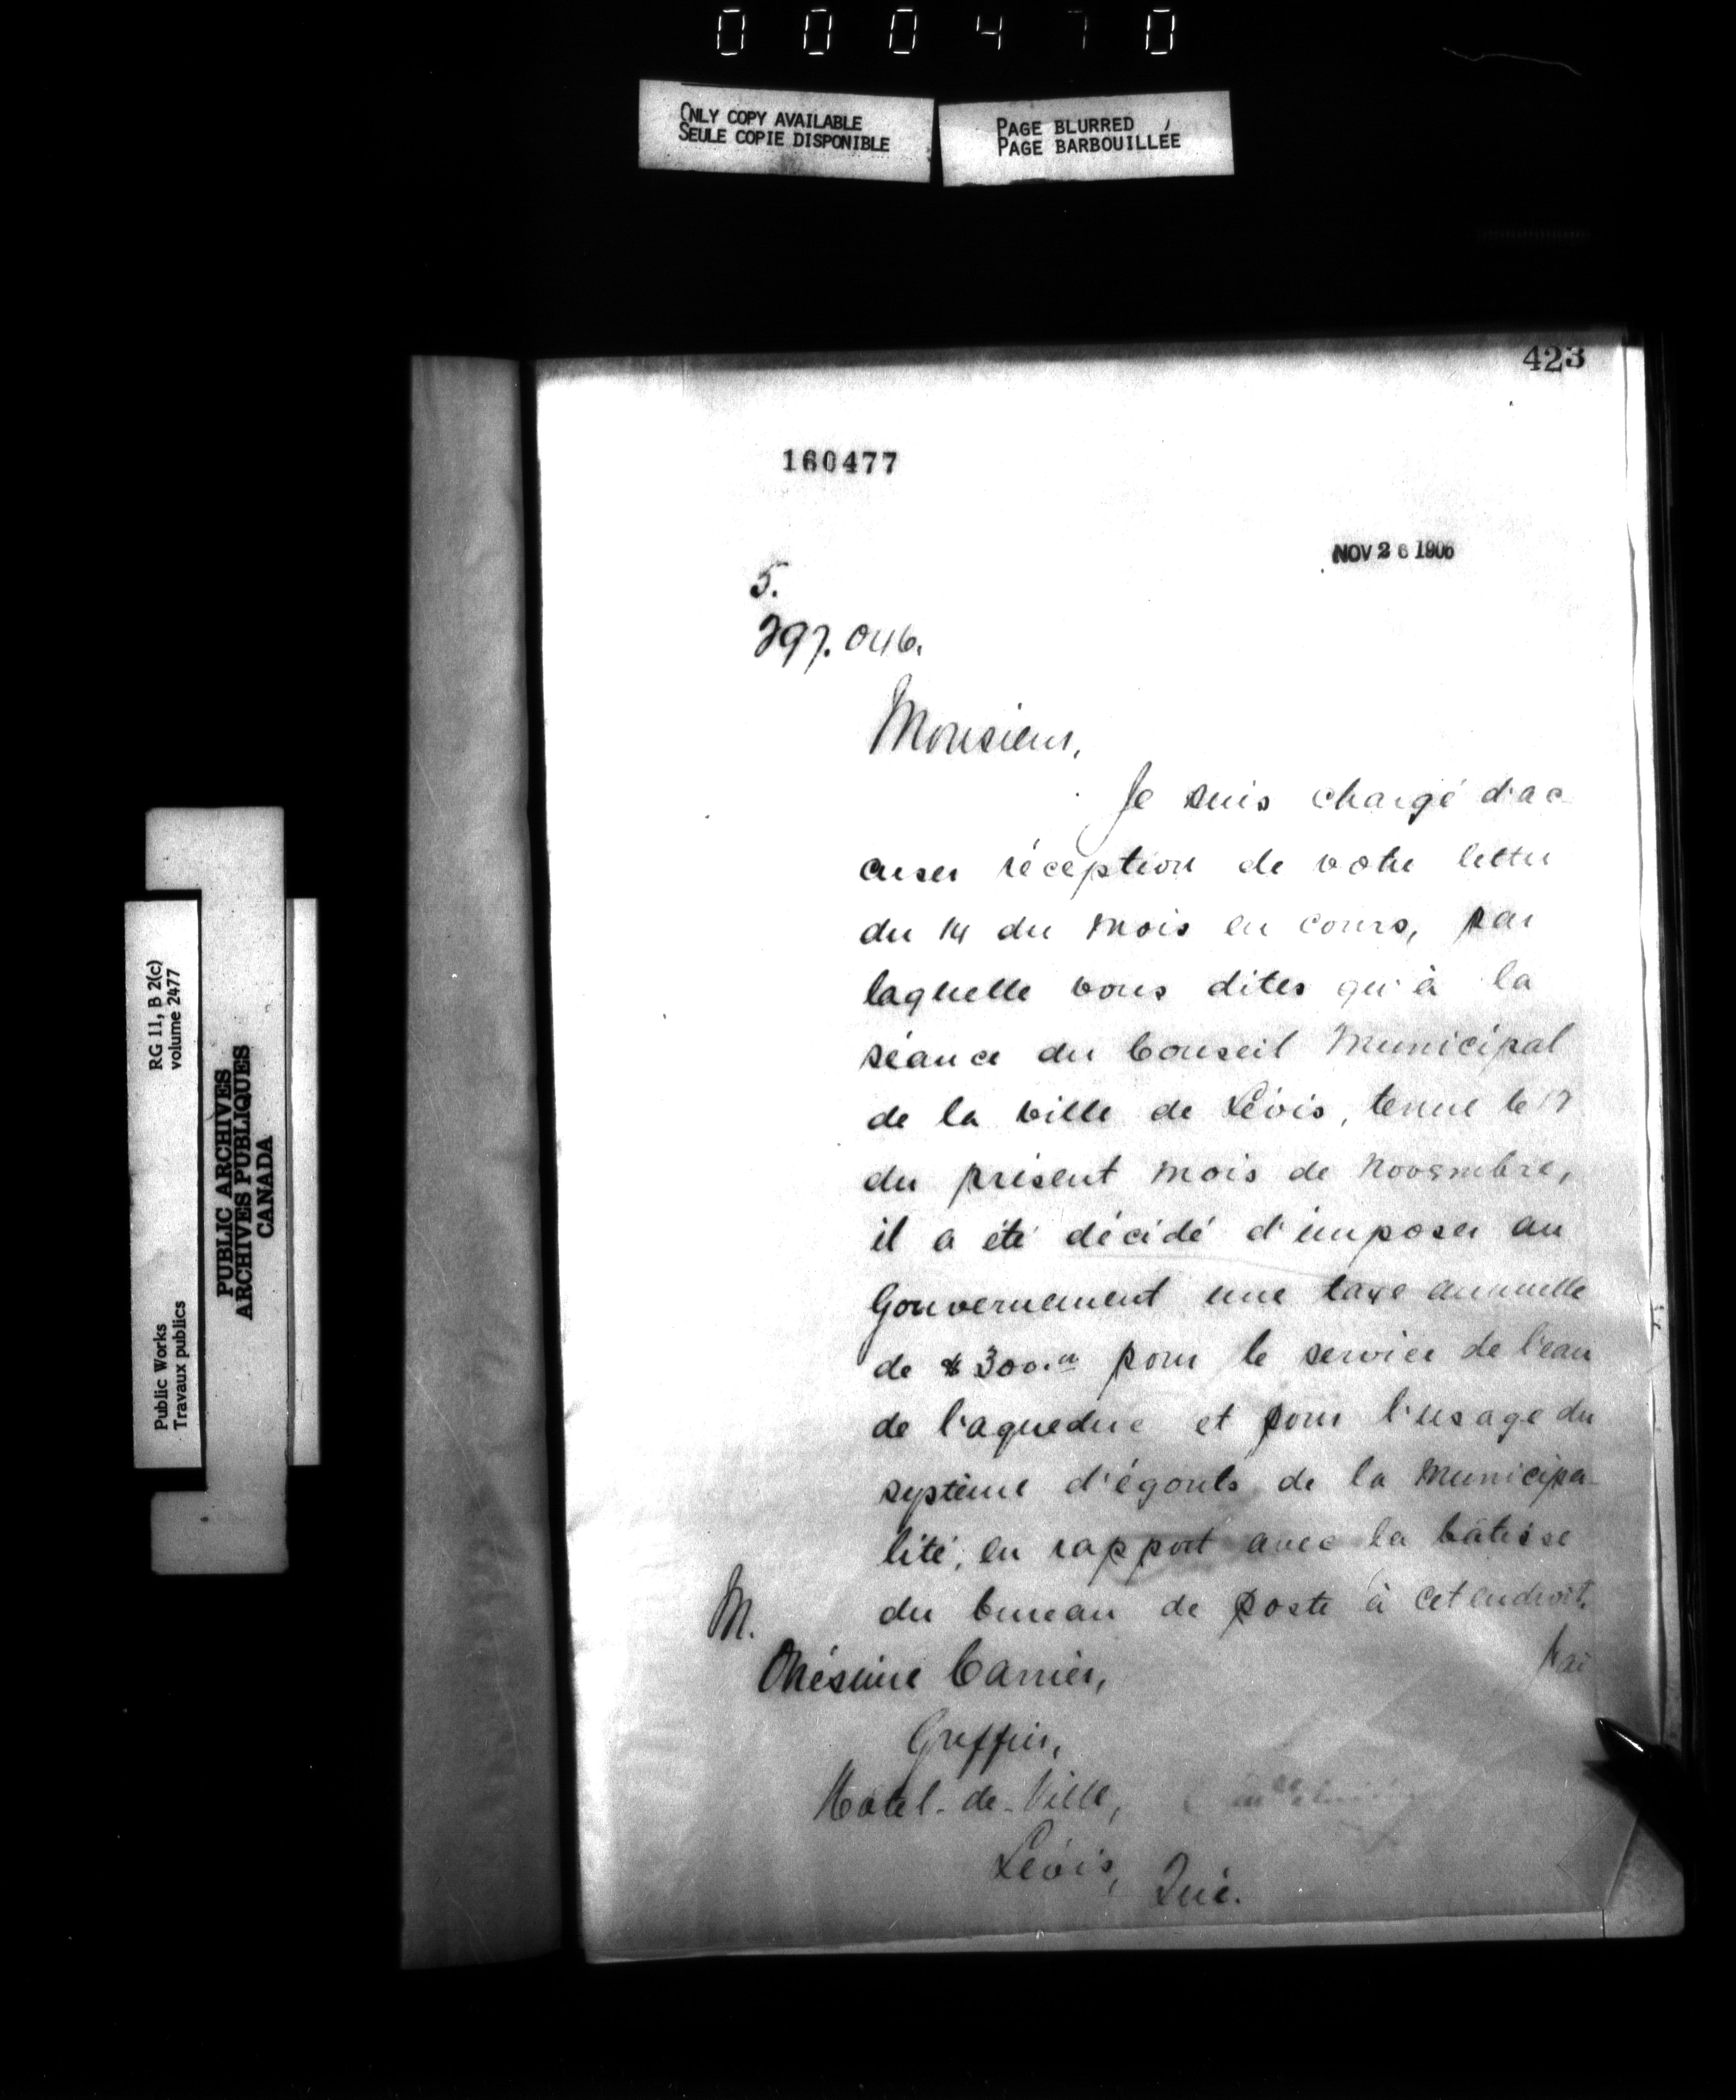 000470
ONLY COPY AVAILABLE
SEULE COPIE DISPONIBLE
PAGE BLURRED
PAGE BARBOUILLÉE
423
160477
NOV 26 1906
5.
297.046.
Monsieur,
Je suis chargé d'ac
cuser réception de votre lettre
du 14 du mois en cours, par
laquelle vous dites qu'à la
séance du Conseil Municipal
de la ville de Lévis, tenue le
du présent mois de Novembre,
il a été décidé d'imposer au
Gouvernement une taxe annuelle
de $300.00 pour le service de l'eau
de l'aqueduc et pour l'usage du
système d'égouts de la Municipa-
lité, en rapport avec la bâtisse
du bureau de poste à cet endroit.
M.
Onésime Carrier,
Greffier,
Hôtel-de-Ville,
Lévis, Qué.
RG 11, B 2(c)
volume 2477
Public Works
Travaux publics
PUBLIC ARCHIVES
ARCHIVES PUBLIQUES
CANADA